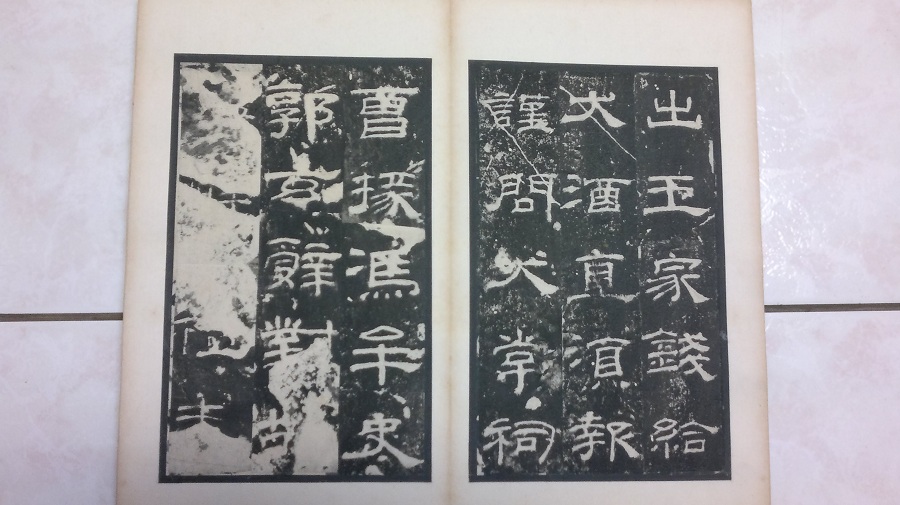 出王家錢給
犬酒直須報
謹問大常祠
曹掾馮牟史
郭玄辭對故
未